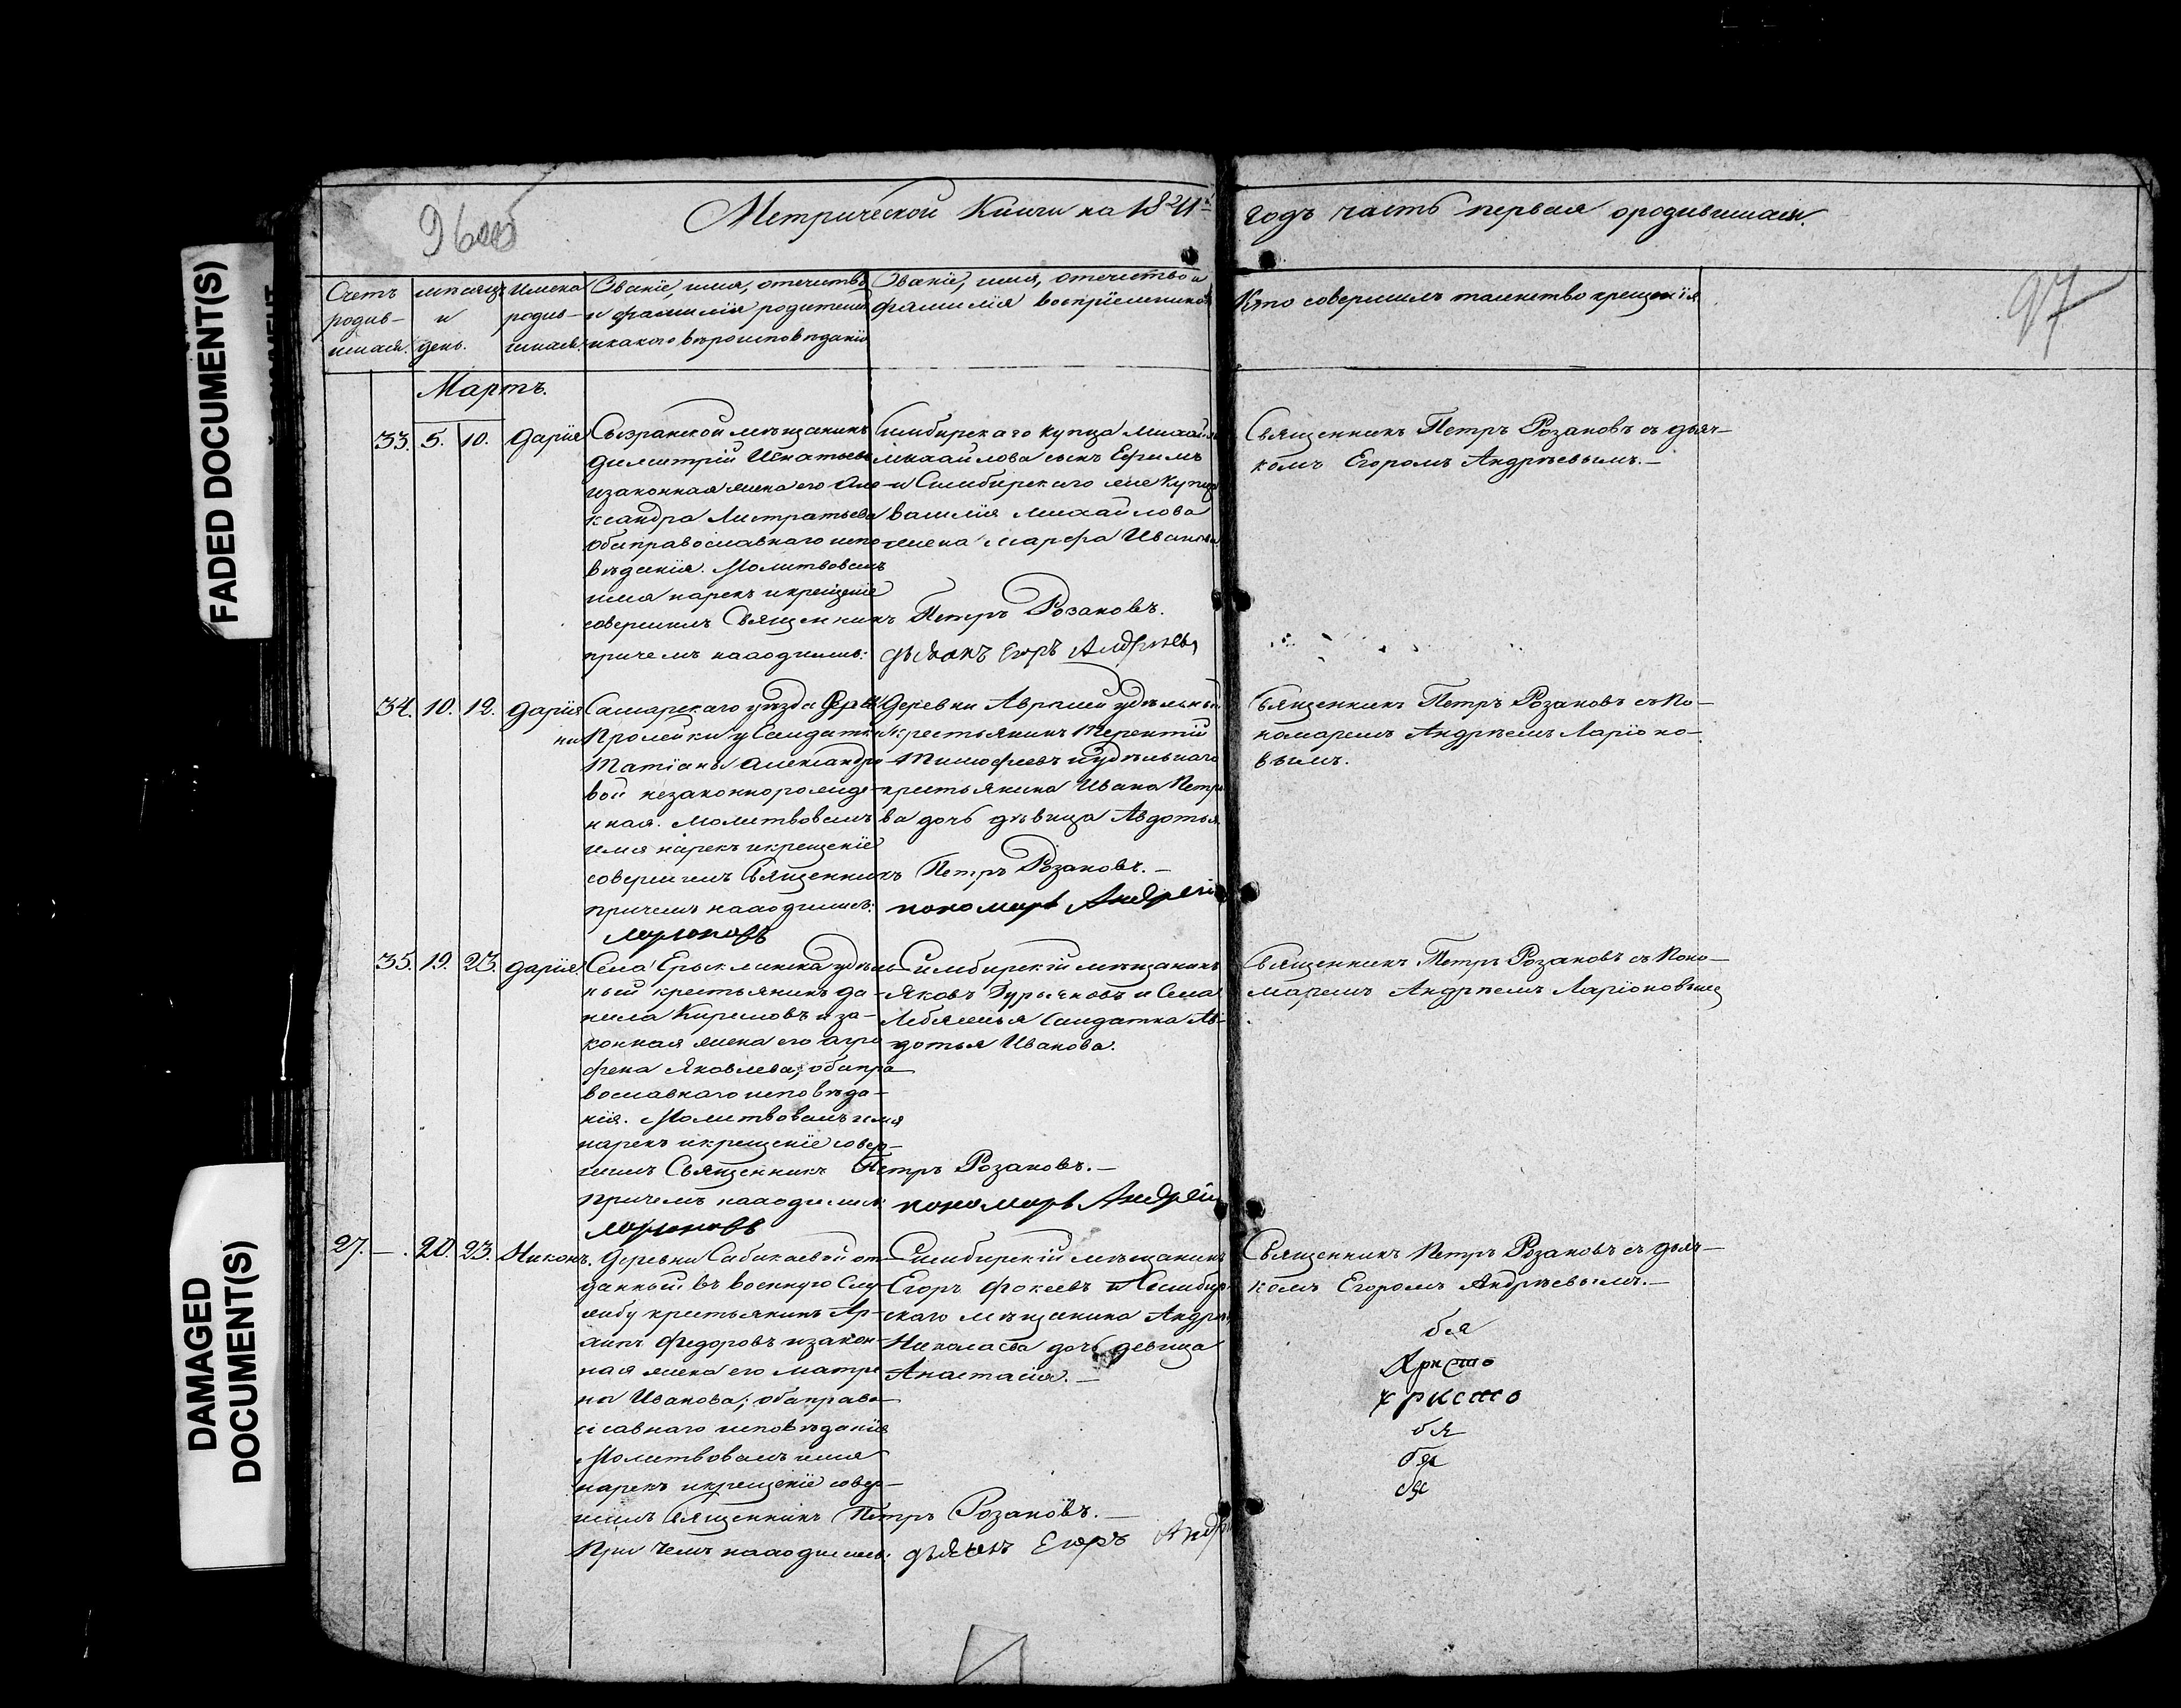 FADED DOCUMENT(S)
DAMAGED
DOCUMENT(S)
Метрической Книги на
годъ часть первая ородившихся.
97
Счетъ
родив-
шихся.
мѣсяцъ
и
день.
Имена
родив-
шихся.
Званіе, имя, отечество
и фамилія родителей
икакого вѣроисповѣданія
Званіе, имя, отечество и
фамилія воспріемниковъ
Кто совершилъ таинство крещенія
Мартъ.
33. 5. 10. Дарія
Сызранской мѣщанинъ
Димитрій Игнатьевъ
изаконная жена его Але-
ксандра Листратьева
оба православнаго испо-
вѣданія. Молитвовалъ
имя нарекъ икрещеніе
совершилъ Священникъ Петръ Розановъ.
причемъ находились: дьячекъ Егоръ Андреевъ
Симбирскаго купца Михайлы
Михайлова сынъ Ефимъ
и Симбирскаго же Купца
Василія Михайлова
жена Марфа Иванова
Священникъ Петръ Розановъ съ дьяч-
комъ Егоромъ Андрѣевымъ.
34. 10. 12. Дарія
Самарскаго уѣзда Дерев
ни Пролейки у Салдатки
Татіаны Александро
вой незаконнорожде-
нная. Молитвовалъ
имя нарекъ икрещеніе
совершилъ Священникъ Петръ Розановъ.
причемъ находились: пономарь Андрей
Ларіоновъ
Деревни удѣльный
крестьянинъ Терентій
Тимофеевъ иудѣльнаго
крестьянина Ивана Петро
ва дочь дѣвица Авдотья.
Священникъ Петръ Розановъ съ По-
номаремъ Андрѣемъ Ларіоно-
вымъ.
35. 19. 23. Дарія.
Села Ерыклинска удѣль
ный крестьянинъ Да-
нила Кириловъ иза-
конная жена его Агра
фена Яковлева; оба пра
вославнаго исповѣда-
нія. Молитвовалъ имя
нарекъ икрещеніе совер-
шилъ Священникъ Петръ Розановъ.
причемъ находились пономарь Андрей
Ларіоновъ
Симбирскій мѣщанинъ
Яковъ и Села
Лебяжья Салдатка Ав-
дотья Иванова.
Священникъ Петръ Розановъ съ Поно-
маремъ Андрѣемъ Ларіоновымъ
27. -. 20. 23. Никонъ.
Деревни Сабакаевой от-
данный въ военную Слу
жбу крестьянинъ Ар-
хипъ Федоровъ изакон-
ная жена его Матре
на Иванова; оба право
славнаго исповѣданія
Молитвовалъ имя
нарекъ икрещеніе совер-
шилъ Священникъ Петръ Розановъ.
При чемъ находились: дьячекъ Егоръ Андр
Симбирскій мѣщанинъ
Егоръ Фокеевъ и Симбир
скаго мѣщанина Андрея
Николаева дочь девица
Анастасія.
Священникъ Петръ Розановъ съ дьяч-
комъ Егоромъ Андрѣевымъ.
бя
Христо
христо
бя
бя
бя